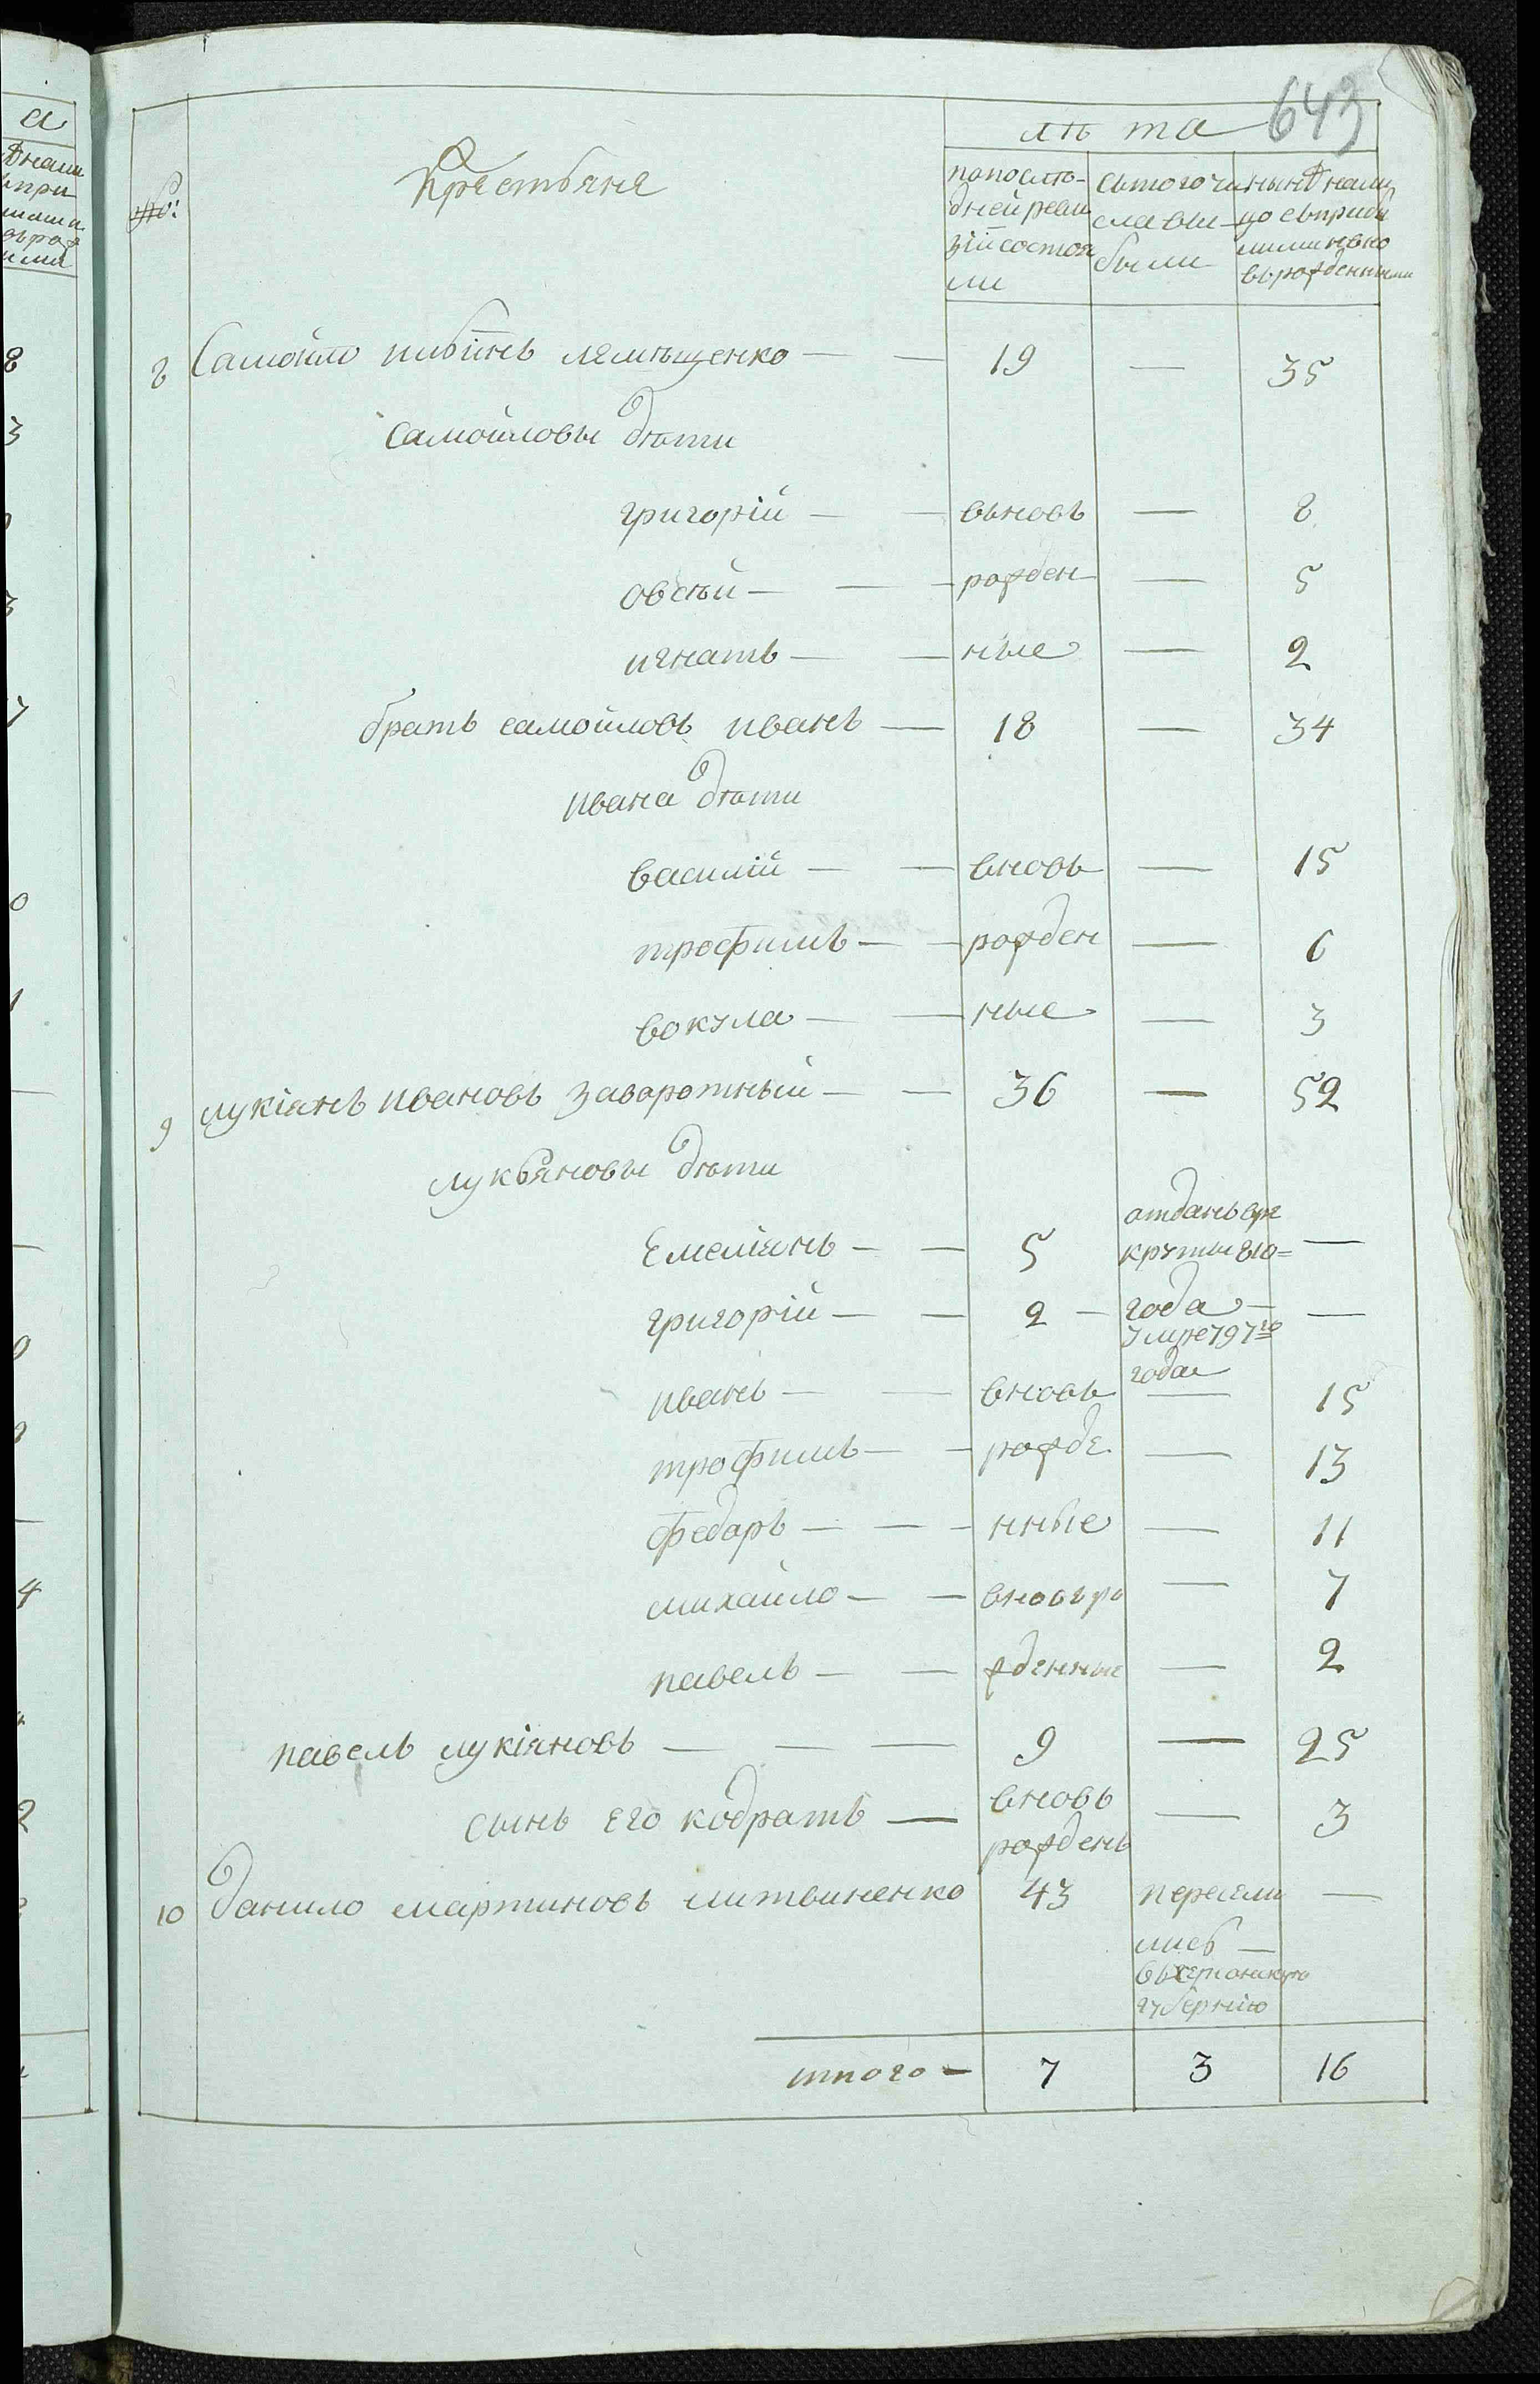 643
лѣ та
№:
Крестьяне
по послѣ-
дней реви
зіи состоя
ли
съ того чи
сла вы-
были
нынѣ нали
цо съ прибы
лыми и вно
въ рожденными
8 Самойло лемѣщенко — — 19 — 35
самойловы дѣти
григорій — — вьновь — 8
овсѣй — — рожден — 5
игнатъ — — ные — 2
братъ самойловъ иванъ — 18 — 34
ивана дѣти
василій — — вновь — 15
трофимъ — — рожден — 6
вокула — — ные — 3
9 лукіянъ ивановъ заворотный — — 36 — 52
лукьяновы дѣти
отданъ вре
Емеліянъ — — 5 круты 810= —
григорій — — 2 — года — —
умре 797го
года
иванъ — — вновь — 15
трофимъ — — рожде — 13
федаръ — — — нные — 11
михайло — — вновъ ро — 7
павелъ — — жденные — 2
павелъ лукіяновъ — — — 9 — 25
сынъ Его кодратъ — вновь — 3
рожденъ
10 данило мартиновъ литвиненко 43 пересели —
лись —
въ херсонскую
губернію
итого — 7 3 16
а
8
3
3
7
0
1
0
4
2